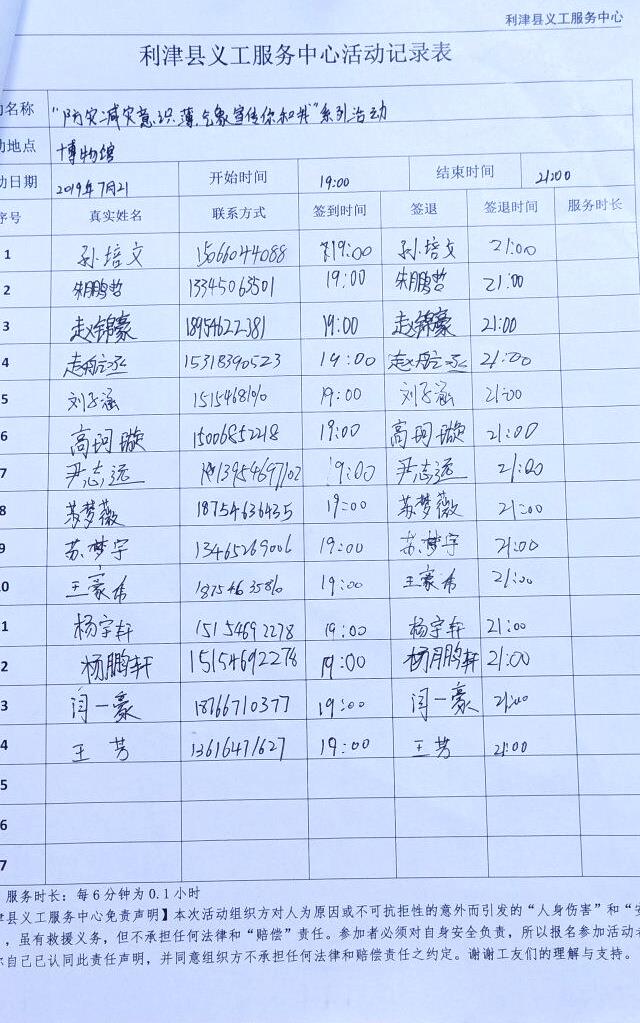 利津县义工服务中心
利津县义工服务中心活动记录表
动名称 "防灾减灾意识薄,气象宣传你和我"系列活动
动地点 博物馆
动日期 2019年7月21 开始时间 19:00 结束时间 21:00
序号 真实姓名 联系方式 签到时间 签退 签退时间 服务时长
1 孙培文 15066044088 19:00 孙培文 21:00
2 朱鹏哲 13345063501 19:00 朱鹏哲 21:00
3 赵锦豪 18954622381 19:00 赵锦豪 21:00
4 15318390523 19:00 21:00
5 刘子涵 19:00 刘子涵 21:00
6 高珂璇 15006852218 19:00 高珂璇 21:00
7 尹志远 13954697102 19:00 尹志远 21:00
8 苏梦薇 18754636435 19:00 苏梦薇 21:00
9 苏梦宇 13465269006 19:00 苏梦宇 21:00
0 王豪希 19:00 王豪希 21:00
1 杨宇轩 15154692278 19:00 杨宇轩 21:00
2 杨鹏轩 15154692278 19:00 杨鹏轩 21:00
3 闫一豪 18766710377 19:00 闫一豪 21:00
4 王芳 13616471627 19:00 王芳 21:00
5
6
7
服务时长：每6分钟为0.1小时
津县义工服务中心免责声明】本次活动组织方对人为原因或不可抗拒性的意外而引发的“人身伤害”和“安
，虽有救援义务，但不承担任何法律和“赔偿”责任。参加者必须对自身安全负责，所以报名参加活动者
你自己已认同此责任声明，并同意组织方不承担任何法律和赔偿责任之约定。谢谢工友们的理解与支持。